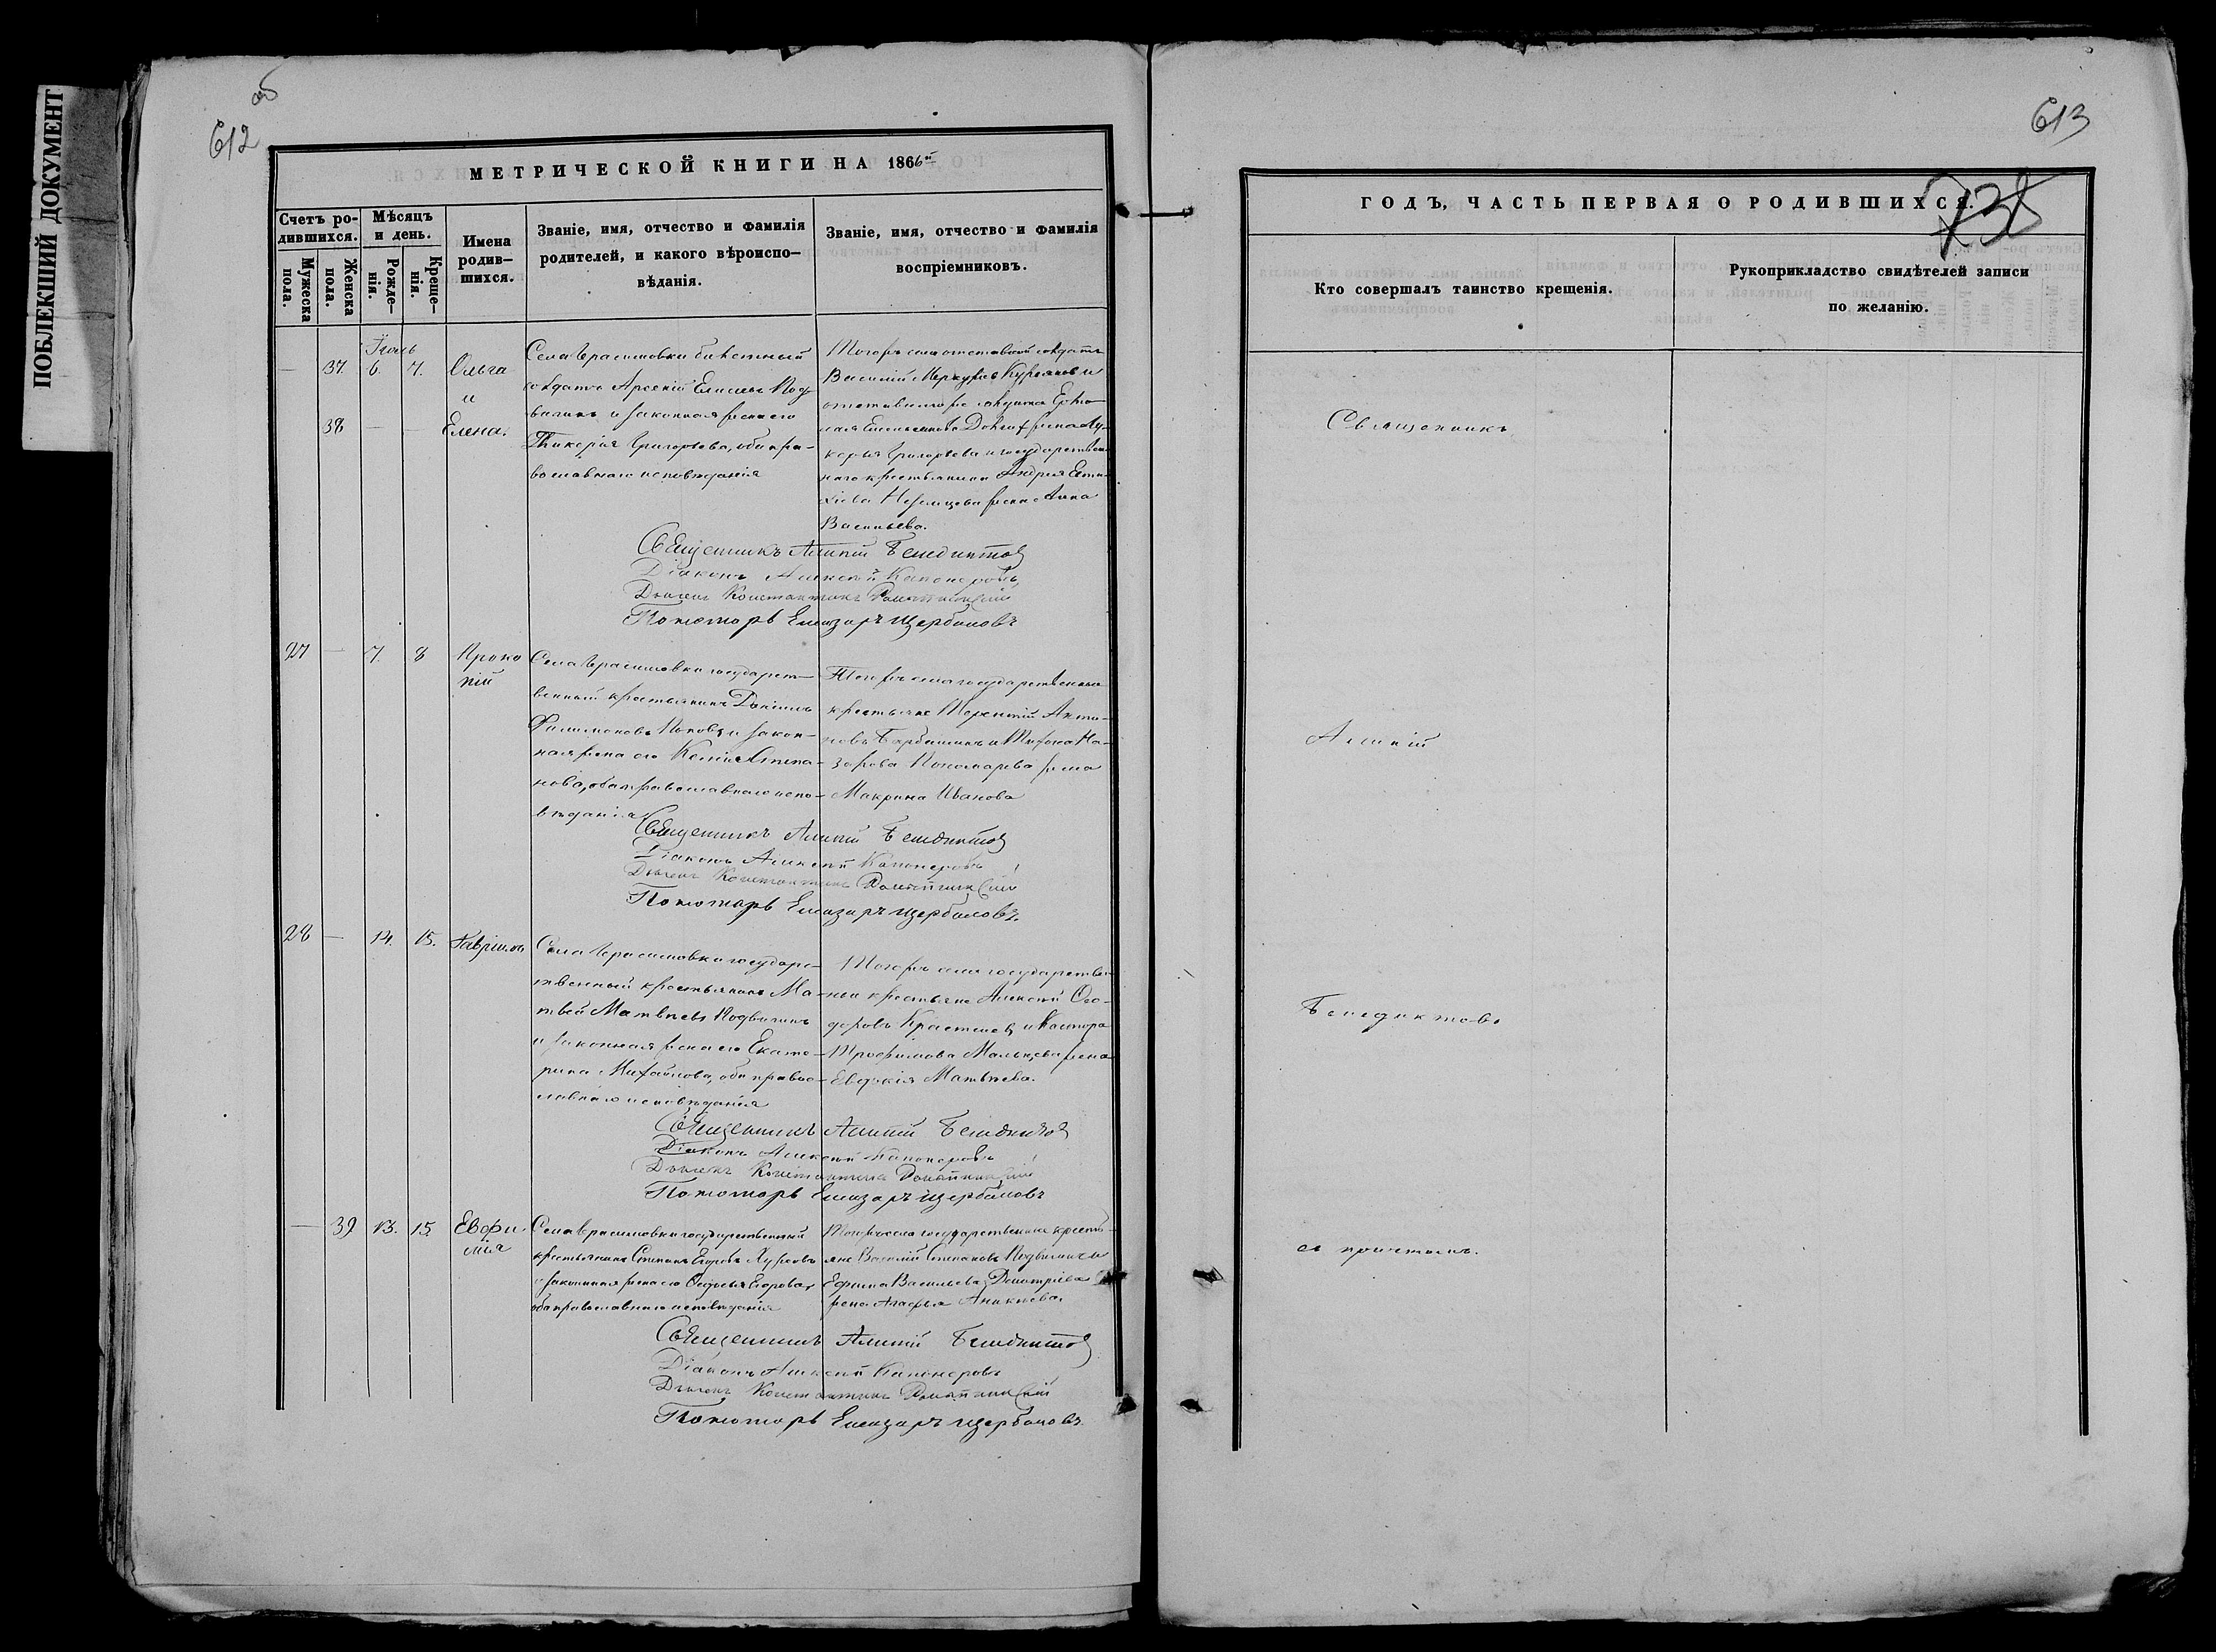 ПОБЛЕКШИЙ ДОКУМЕНТ
об
612
МЕТРИЧЕСКОЙ КНИГИ НА 1866й
Счетъ ро-
дившихся.
Мѣсяцъ
и день.
Имена
родив-
шихся.
Званіе, имя, отчество и фамилія
родителей, и какого вѣроиспо-
вѣданія.
Званіе, имя, отчество и фамилія
воспріемниковъ.
Мужеска
пола.
Женска
пола.
Рожде-
нія.
Креще-
нія.
Іюль
— 37. 6. 7. Ольга
и
38 — — Елена.
Села Герасимовки билетный
солдатъ Арсеній Подв-
игинъ и законная жена его
Гликерія Григорьева, оба пра-
вославнаго исповѣданія
Тогожъ села отставной солдатъ
Василій Меркуловъ и
отставнаго солдата
жена Лу-
керья Григорьева и государствен-
наго крестьянина Андрея
жена Анна
Васильева.
Священникъ Алипій Бенедиктов
Діаконъ Алексѣй Капонеровъ
Дьячекъ Константинъ
Пономарь Елиазаръ Щербаковъ
27 — 7. 8 Проко
пій
Села Герасимовки государст-
венный крестьянинъ Даніилъ
Филимоновъ Поповъ и закон-
ная жена его Ксенія Степа-
нова, оба православнаго испо-
вѣданія
Тогожъ села государственные
крестьяне Терентій Анто-
новъ и Тихона На-
зарова Пономарева жена
Макрина Иванова
Священникъ Алипій Бенедиктов
Діаконъ Алексѣй Капонеровъ
Дьячекъ Константинъ
Пономарь Елиазаръ Щербаковъ.
28 — 14. 15. Гавріилъ
Села Герасимовки государс-
твенный крестьянинъ Ма-
твей Матвѣевъ Подвигинъ
и законная жена его Екате-
рина Михайлова, оба правос-
лавнаго исповѣданія
Тогожъ села государствен-
ные крестьяне Алексѣй Ѳео-
доровъ и
Трофимова Мальцева жена
Евдокія Матвѣева.
Священникъ Алипій Бенедиктов
Діаконъ Алексѣй Капонеровъ
Дьячекъ Константинъ
Пономарь Елиазаръ Щербаковъ
— 39 13. 15. Евфи-
мія
Села Герасимовки государственный
крестьянинъ Степанъ Егоровъ
и законная жена его Егорова,
оба православнаго исповѣданія
Тогожъ села государственные кресть-
яне Василій Степановъ Подвигинъ и
Ефима Васильева Дмитріева
жена Агафья Аникіева.
Священникъ Алипій Бенедиктов
Діаконъ Алексѣй Капонеровъ
Дьячекъ Константинъ
Пономарь Елиазаръ Щербаковъ.
613
738
ГОДЪ, ЧАСТЬ ПЕРВАЯ О РОДИВШИХСЯ.
Кто совершалъ таинство крещенія.
Рукоприкладство свидѣтелей записи
по желанію.
Священникъ
Алипій
Бенедиктовъ
съ причтомъ.